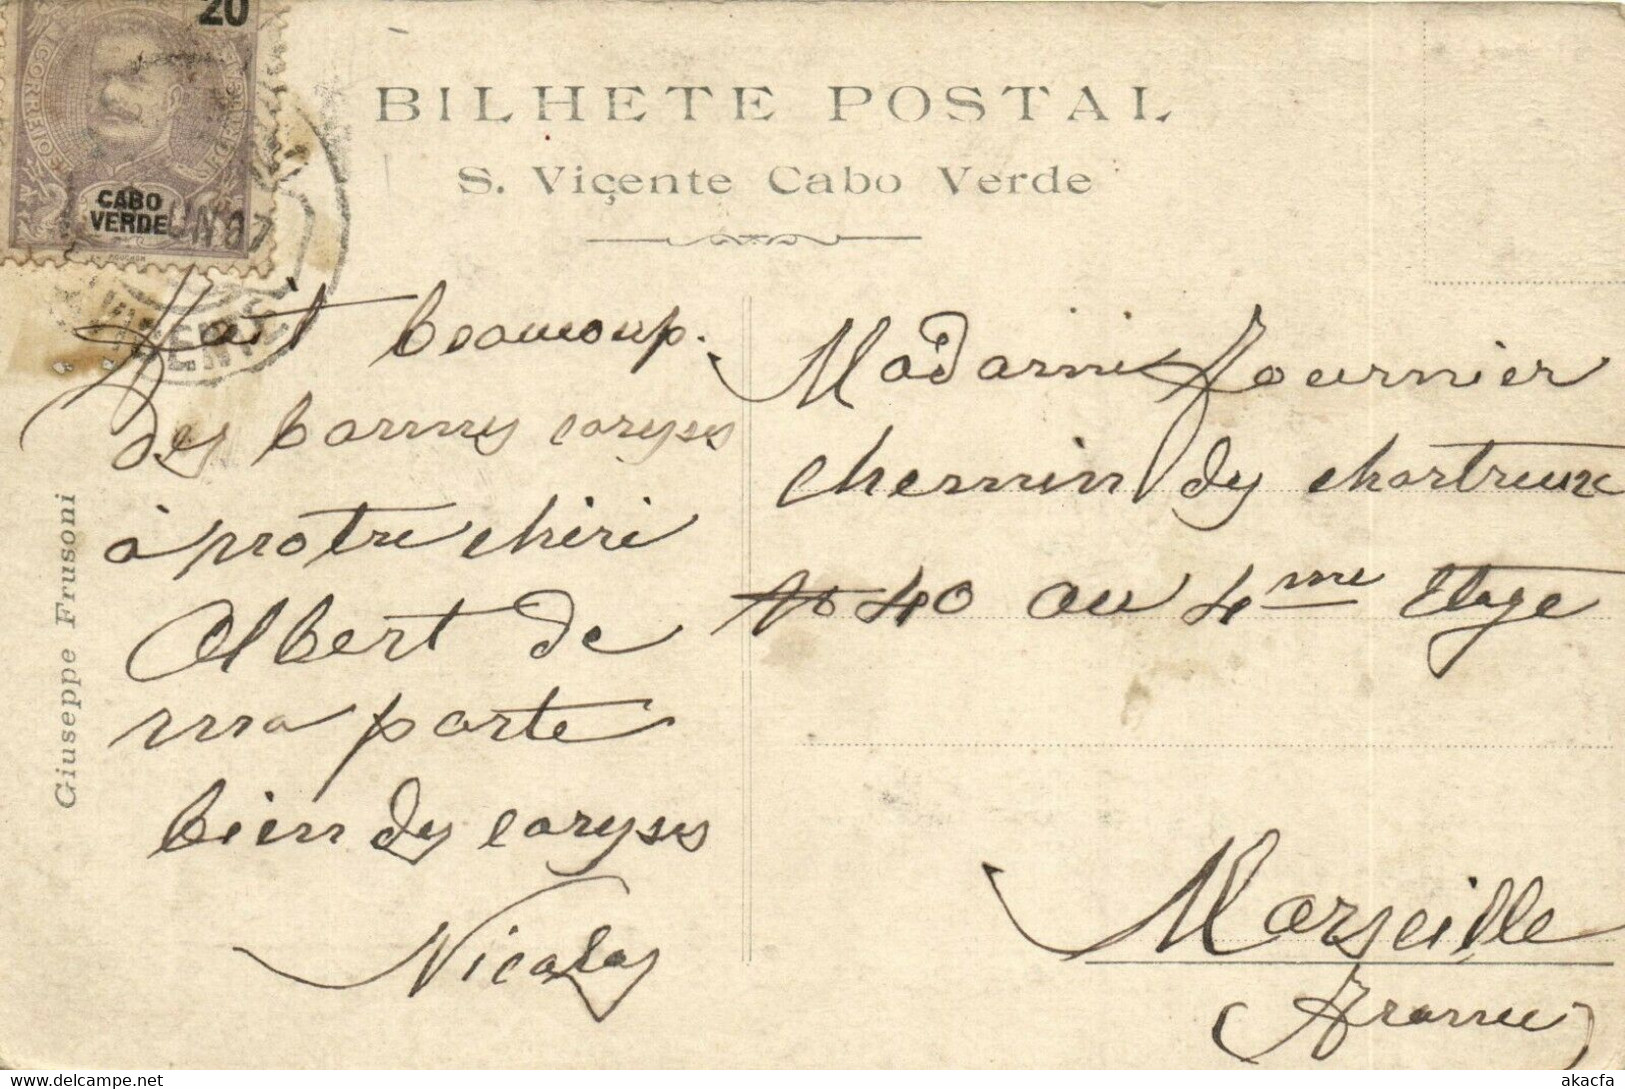 20
CORREIOS
CABO
VERDE
BILHETE POSTAL
S. Viçente Cabo Verde
Giuseppe Frusoni
Fait beaucoup.
des bonnes caryses
à notre chéri
Albert de
ma parte
bien des caryses
Nicolas
Madame Fournier
chemin des chartreux
No 40 au 4me Etage
Marseille
(France)
akacfa